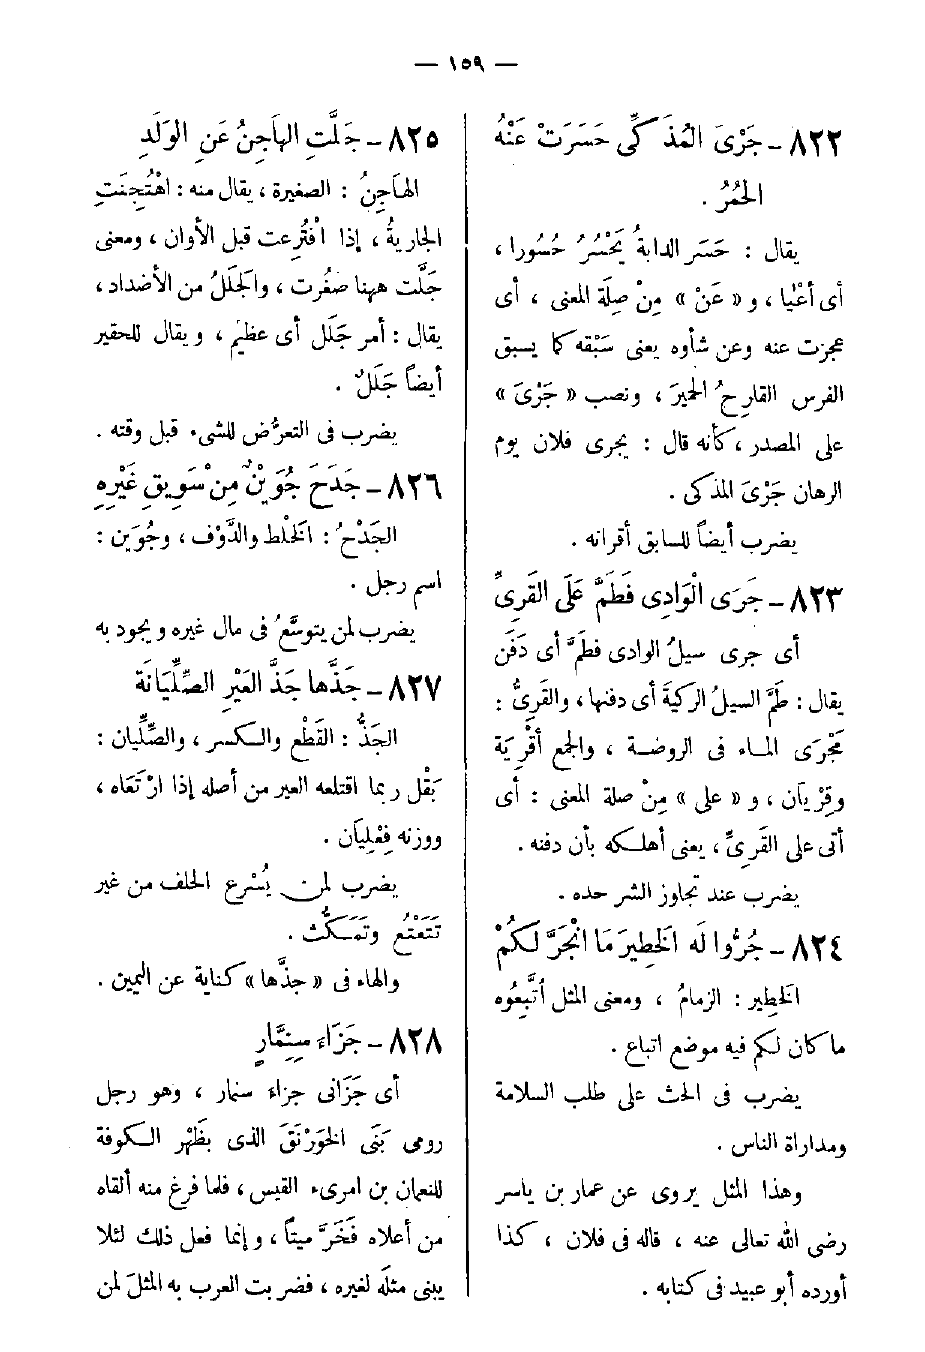 — ١٥٩ —
٨٢٢ - جَرْىَ المُذَكِّى حَسَرَتْ عَنْهُ
الحُمُرُ .
يقال : حَسَر الدابةُ يَحْسُرُ حُسُورا ،
أى أعْيا ، و « عَنْ » مِنْ صِلَة المعنى ، أى
عجزت عنه وعن شأوه يعنى سَبْقه كما يسبق
الفرس القارِحُ الحميرَ ، ونصب « جَرْىَ »
على المصدر ، كأنه قال : يجرى فلان يوم
الرهان جَرْىَ المذكى .
يضرب أيضاً للسابق أقرانه .
٨٢٣ - جَرَى الْوَادِى فَطَمَّ عَلَى القَرِىِّ
أى جرى سيلُ الوادى فطَمَّ أى دَفَن
يقال : طَمَّ السيلُ الركيةَ أى دفنها ، والقَرِىُّ :
مَجْرَى الماء فى الروضة ، والجمع أقْرِيَة
وقِرْيَان ، و « على » مِنْ صلة المعنى : أى
أتى على القَرِىِّ ، يعنى أهلكه بأن دفنه .
يضرب عند تجاوز الشر حده .
٨٢٤ - جُرُّوا لَه الخَطِيرَ مَا انْجَرَّ لَكُمْ
الخَطِير : الزمامُ ، ومعنى المثل اتَّبِعُوه
ما كان لكم فيه موضع اتباع .
يضرب فى الحث على طلب السلامة
ومداراة الناس .
وهذا المثل يروى عن عمار بن ياسر
رضى الله تعالى عنه ، قاله فى فلان ، كذا
أورده أبو عبيد فى كتابه .
٨٢٥ - جَلَّتِ الهَاجِنُ عَنِ الوَلَدِ
الهَاجِنُ : الصغيرة ، يقال منه : اهْتُجِنَتِ
الجاريةُ ، إذا افْتُرِعت قبل الأوان ، ومعنى
جَلَّت ههنا صغُرت ، والجَلَلُ من الأضداد ،
يقال : أمر جَلَل أى عظيم ، ويقال للحقير
أيضاً جَلَلٌ .
يضرب فى التعرُّض للشىء قبل وقته .
٨٢٦ - جَدَحَ جُوَيْنٌ مِنْ سَوِيقِ غَيْرِهِ
الجَدْحُ : الخَلْط والدَّوْف ، وجُوَين :
اسم رجل .
يضرب لمن يتوسَّعُ فى مال غيره ويجود به
٨٢٧ - جَذَّها جَذَّ العَيْرِ الصِّلِّيَانَة
الجَذُّ : القَطْع والكسر ، والصِّلِّيان :
بَقْل ربما اقتلعه العير من أصله إذا ارْتَعَاه ،
ووزنه فِعْلِيَان .
يضرب لمن يُسْرع الحلف من غير
تَتَعْتُع وتَمَكُّث .
والهاء فى « جذَّها » كناية عن اليمين .
٨٢٨ - جَزَاءَ سِنِمَّارٍ
أى جَزَانى جزاءَ سنمار ، وهو رجل
رومى بَنَى الخوَرْنَقَ الذى بظَهْر الكوفة
للنعمان بن امرىء القيس ، فلما فرغ منه ألقاه
من أعلاه فَخَرَّ ميتاً ، وإنما فعل ذلك لئلا
يبنى مثلَه لغيره ، فضربت العرب به المثلَ لمن